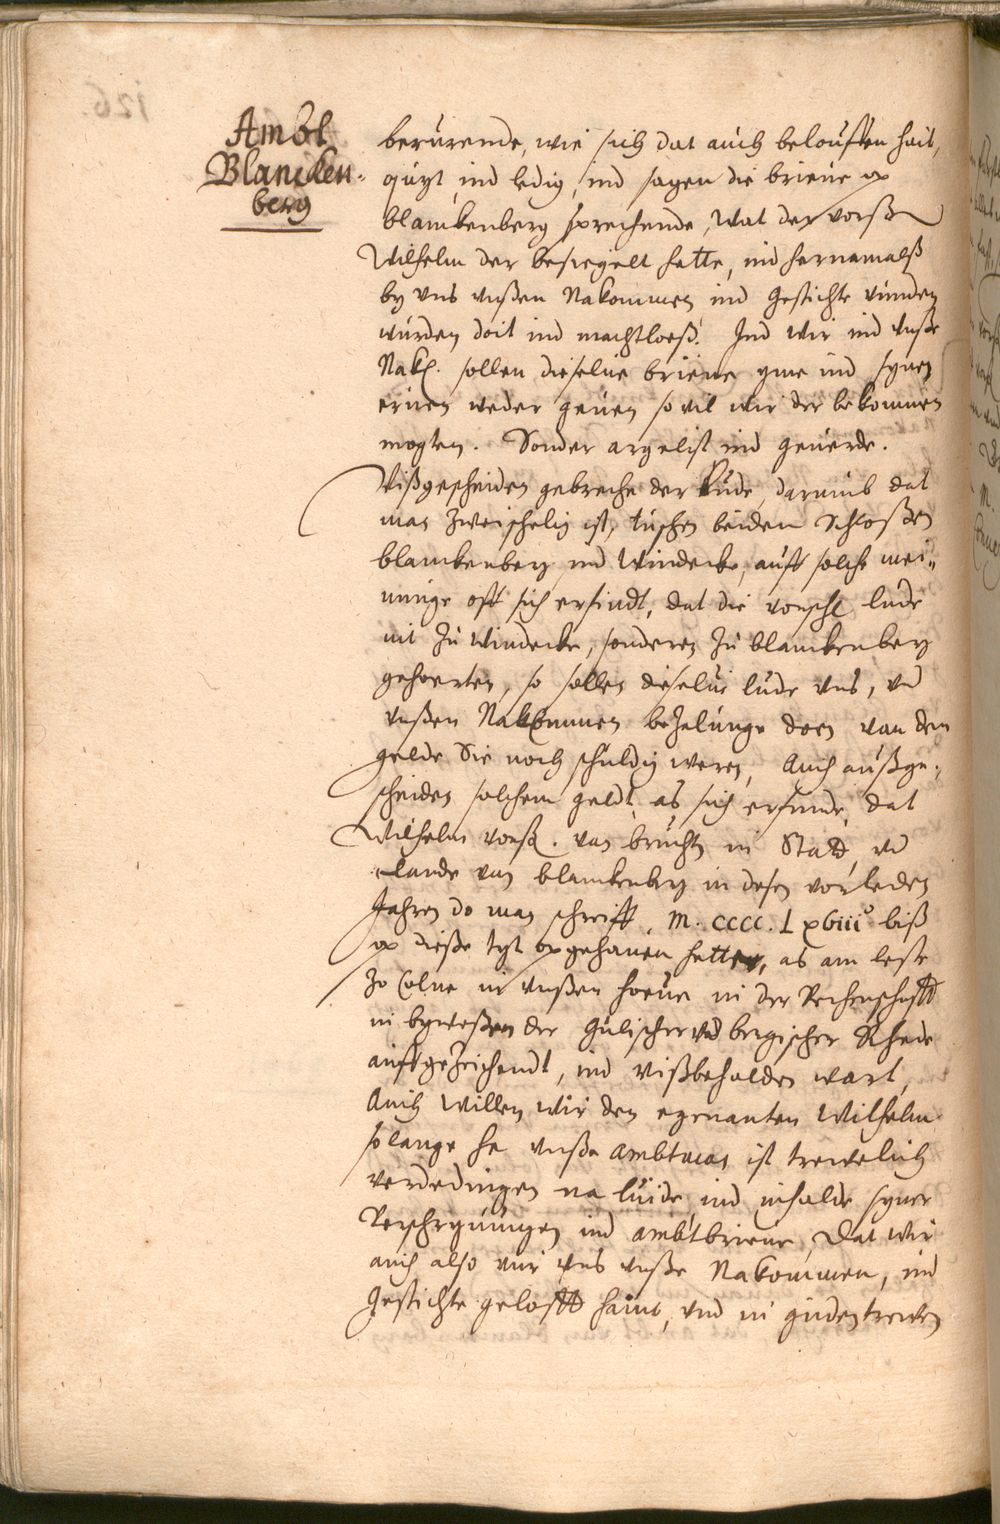 Ambt
Blancken-
berg
berürende, wie sich dat auch belouffen hait,
quyt ind ledig, ind sagen die brieue op
blanckenberg sprechende, wat der vorß
Wilhelm der besiegelt hette, ind hernamalß
by vns vnßen Nakommen ind Gestichte vunden
würden doit ind machtloeß. Ind wir ind vnße
Nak. sollen dieselue brieue yme ind synen
eruen weder geuen so vil wir der bekommen
mogten. Sonder argelist ind geuerde.
Vißgescheiden gebreche der Lude, darumb dat
man zweischelig ist, tuschen beiden Schloßen
blanckenberg ind Windecke, auff solche mei„
nunge off sich erfindt, dat die vorschr lude
nit zu Windecke, sonderen zu blanckenberg
gehoerten, so sollen dieselue lude vns, vnd
vnßen Nakommen bezalunge doen van dem
gelde Sie noch schuldig weren, Auch außge-
scheiden solchem geldt, as sich erfunde, dat
Wilhelm vorß. van bruchten in Statt vnd
Lande van blanckenberg in desen vorleden
Jahren do man schreiff. M. CCCC. LXViii biß
op dieße tyt opgehauen hette, as am leste
zo Colne in vnßen houe in der Rechenschafft
in byweßen der Gulischer vnd bergischer Rhede
auffgezeichendt, ind vißbehalden wart,
Auch willen wir den egenanten Wilhelm
solange he vnße Ambtman ist trewelich
verdedingen na luide ind inhalde syner
Verschryuungen ind ambtbrieue, Dat wir
auch also vur vns vnße Nakommen, ind
Gestichte geloifft hain, vnd in guden trewen